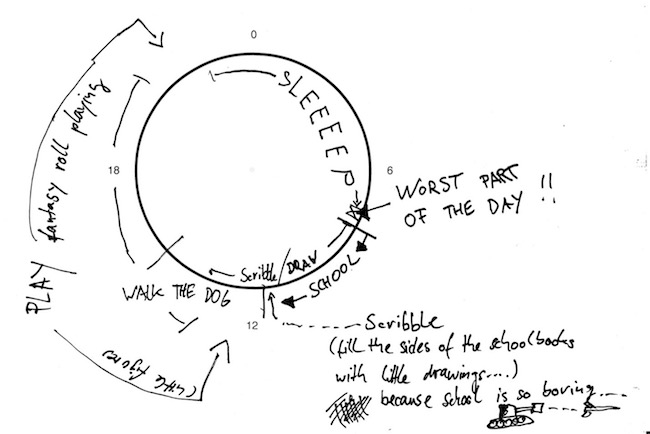 0
SLEEEEP
6
WORST PART
OF THE DAY !!
18
PLAY fantasy roll playing
little figures
WALK THE DOG
Scribble/DRAW
SCHOOL
12
Scribble
(fill the sides of the schoolbooks
with little drawings....)
because school is so boring....